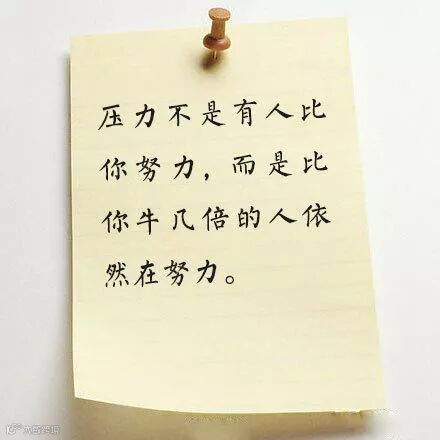 压力不是有人比
你努力，而是比
你牛几倍的人依
然在努力。
大数跨境